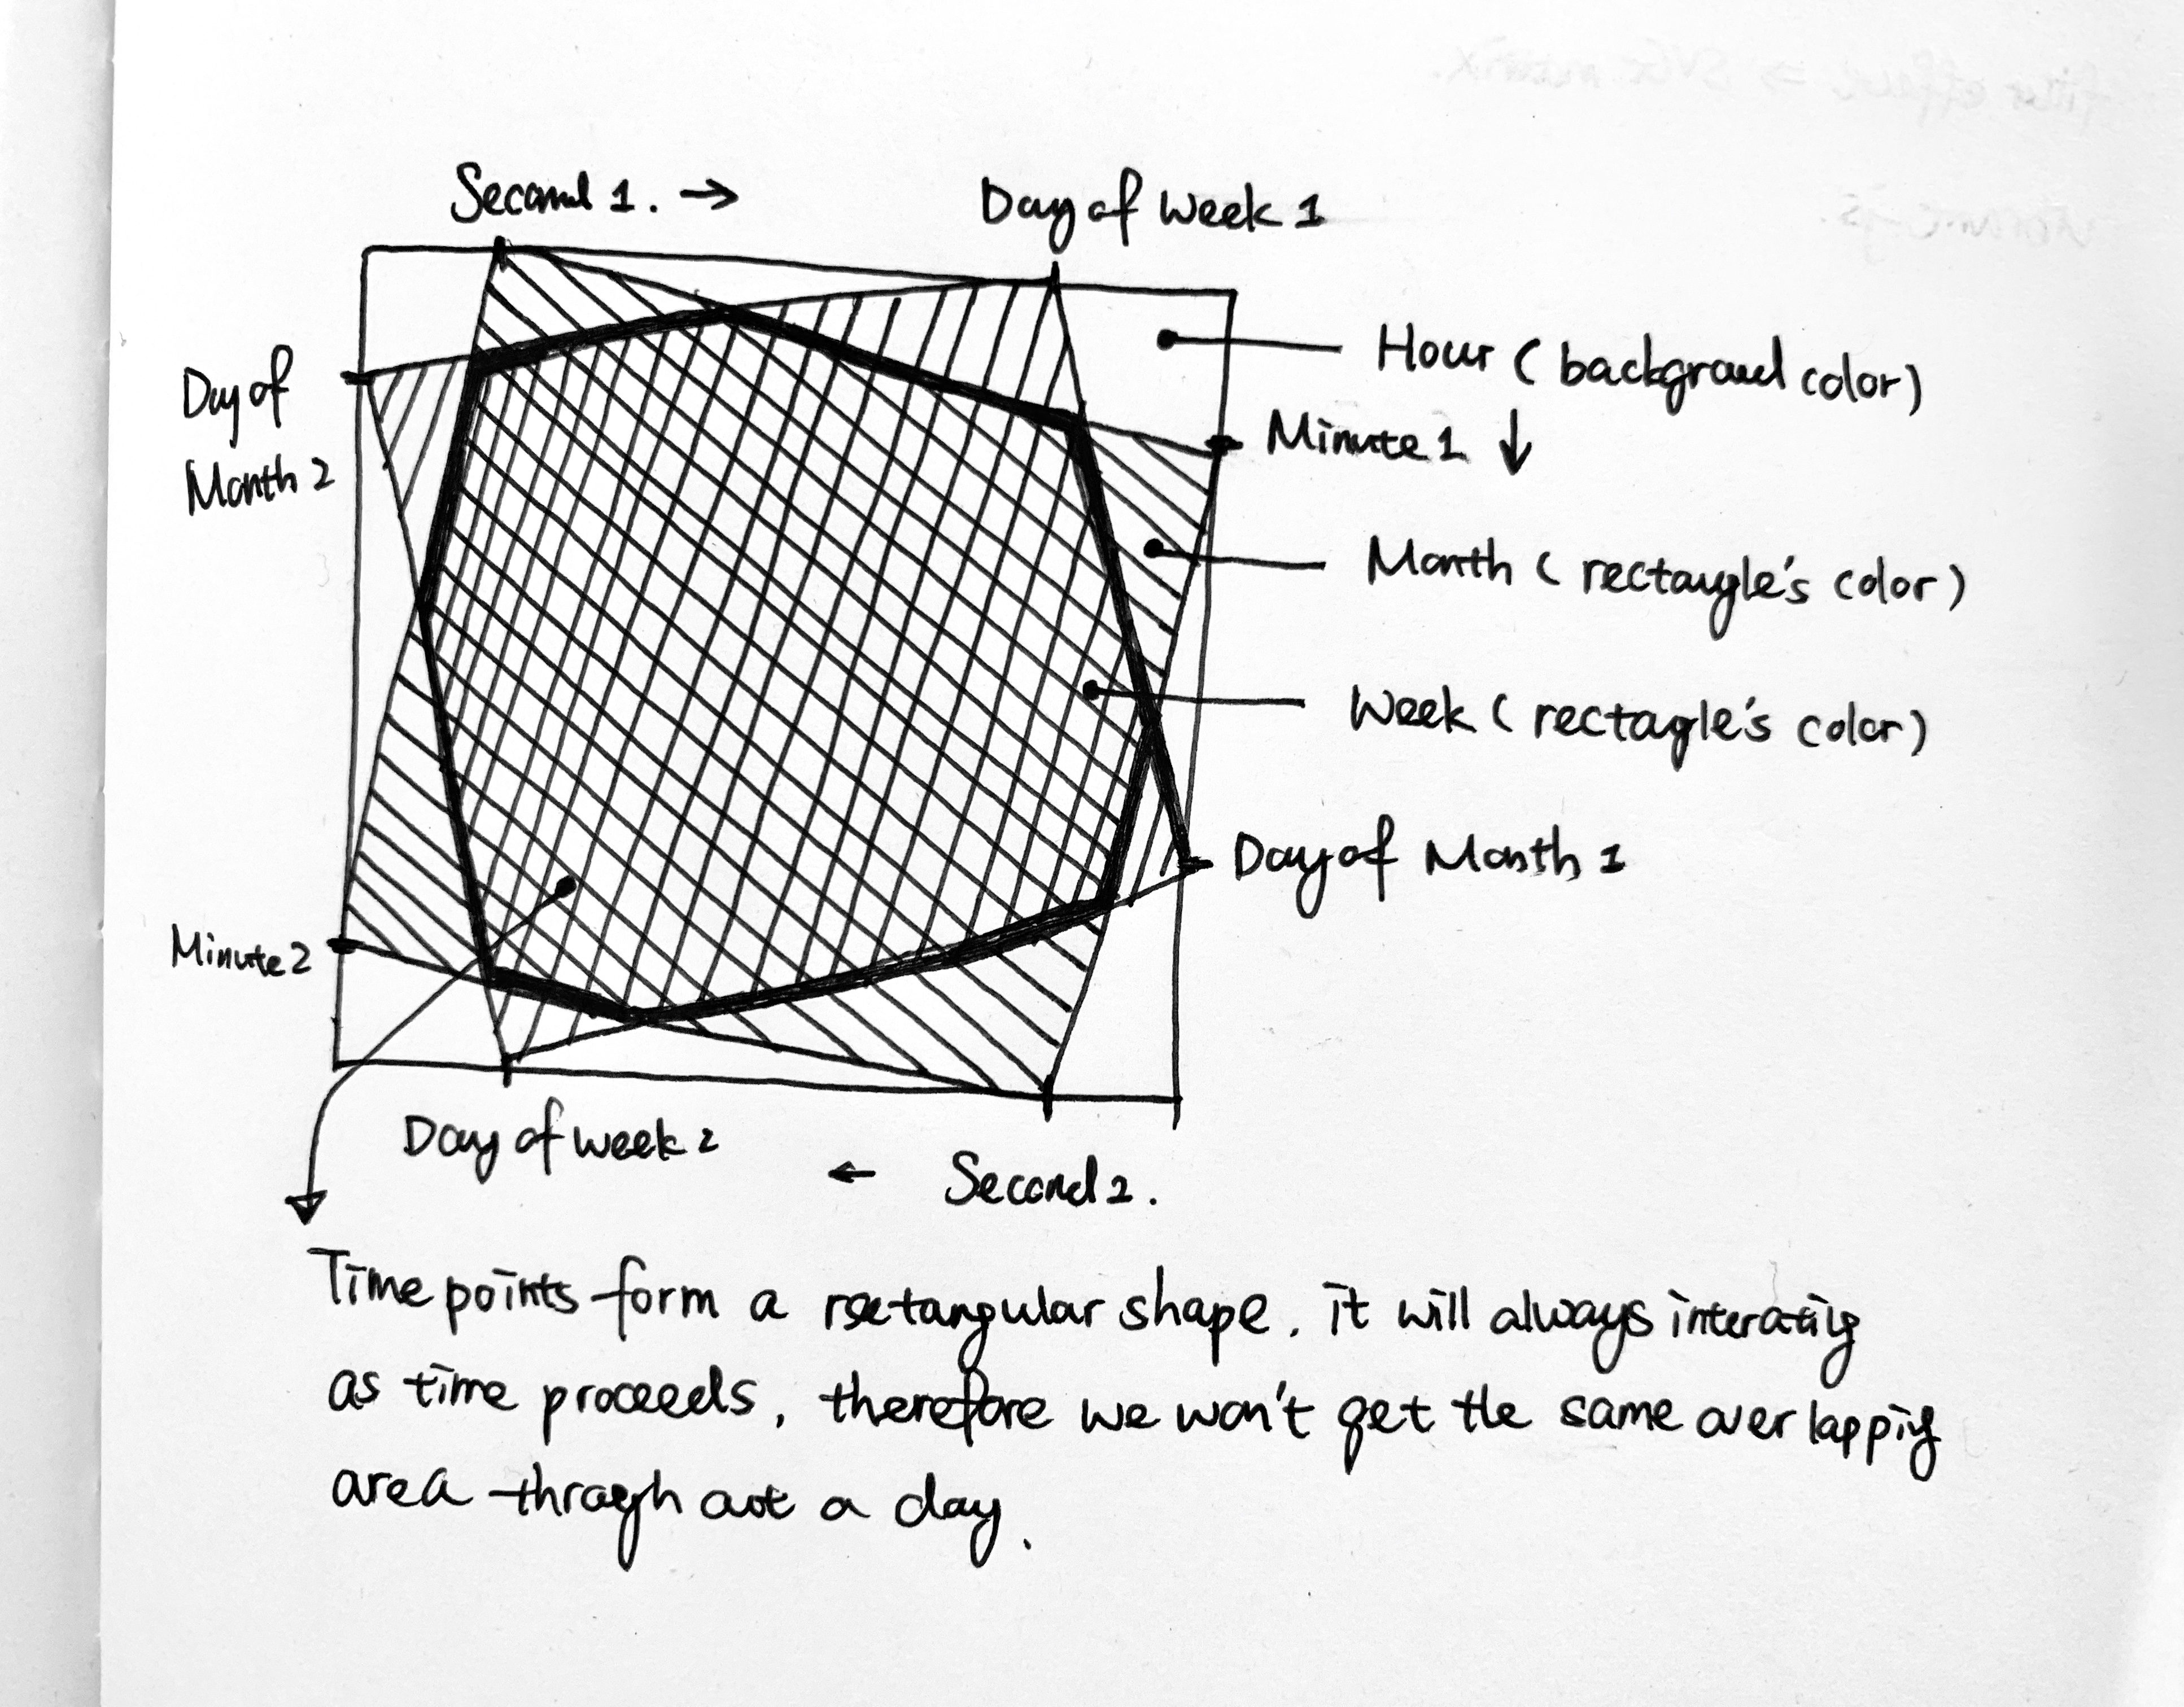 Second 1. →
Day of Week 1
Day of
Month 2
Hour ( background color)
Minute 1 ↓
Month ( rectangle's color)
Week ( rectagle's color)
Day of Month 1
Minute 2
Day of week 2
← Second 2.
Time points form a rectangular shape. it will always interating
as time proceeds, therefore we won't get the same overlapping
area through out a day.